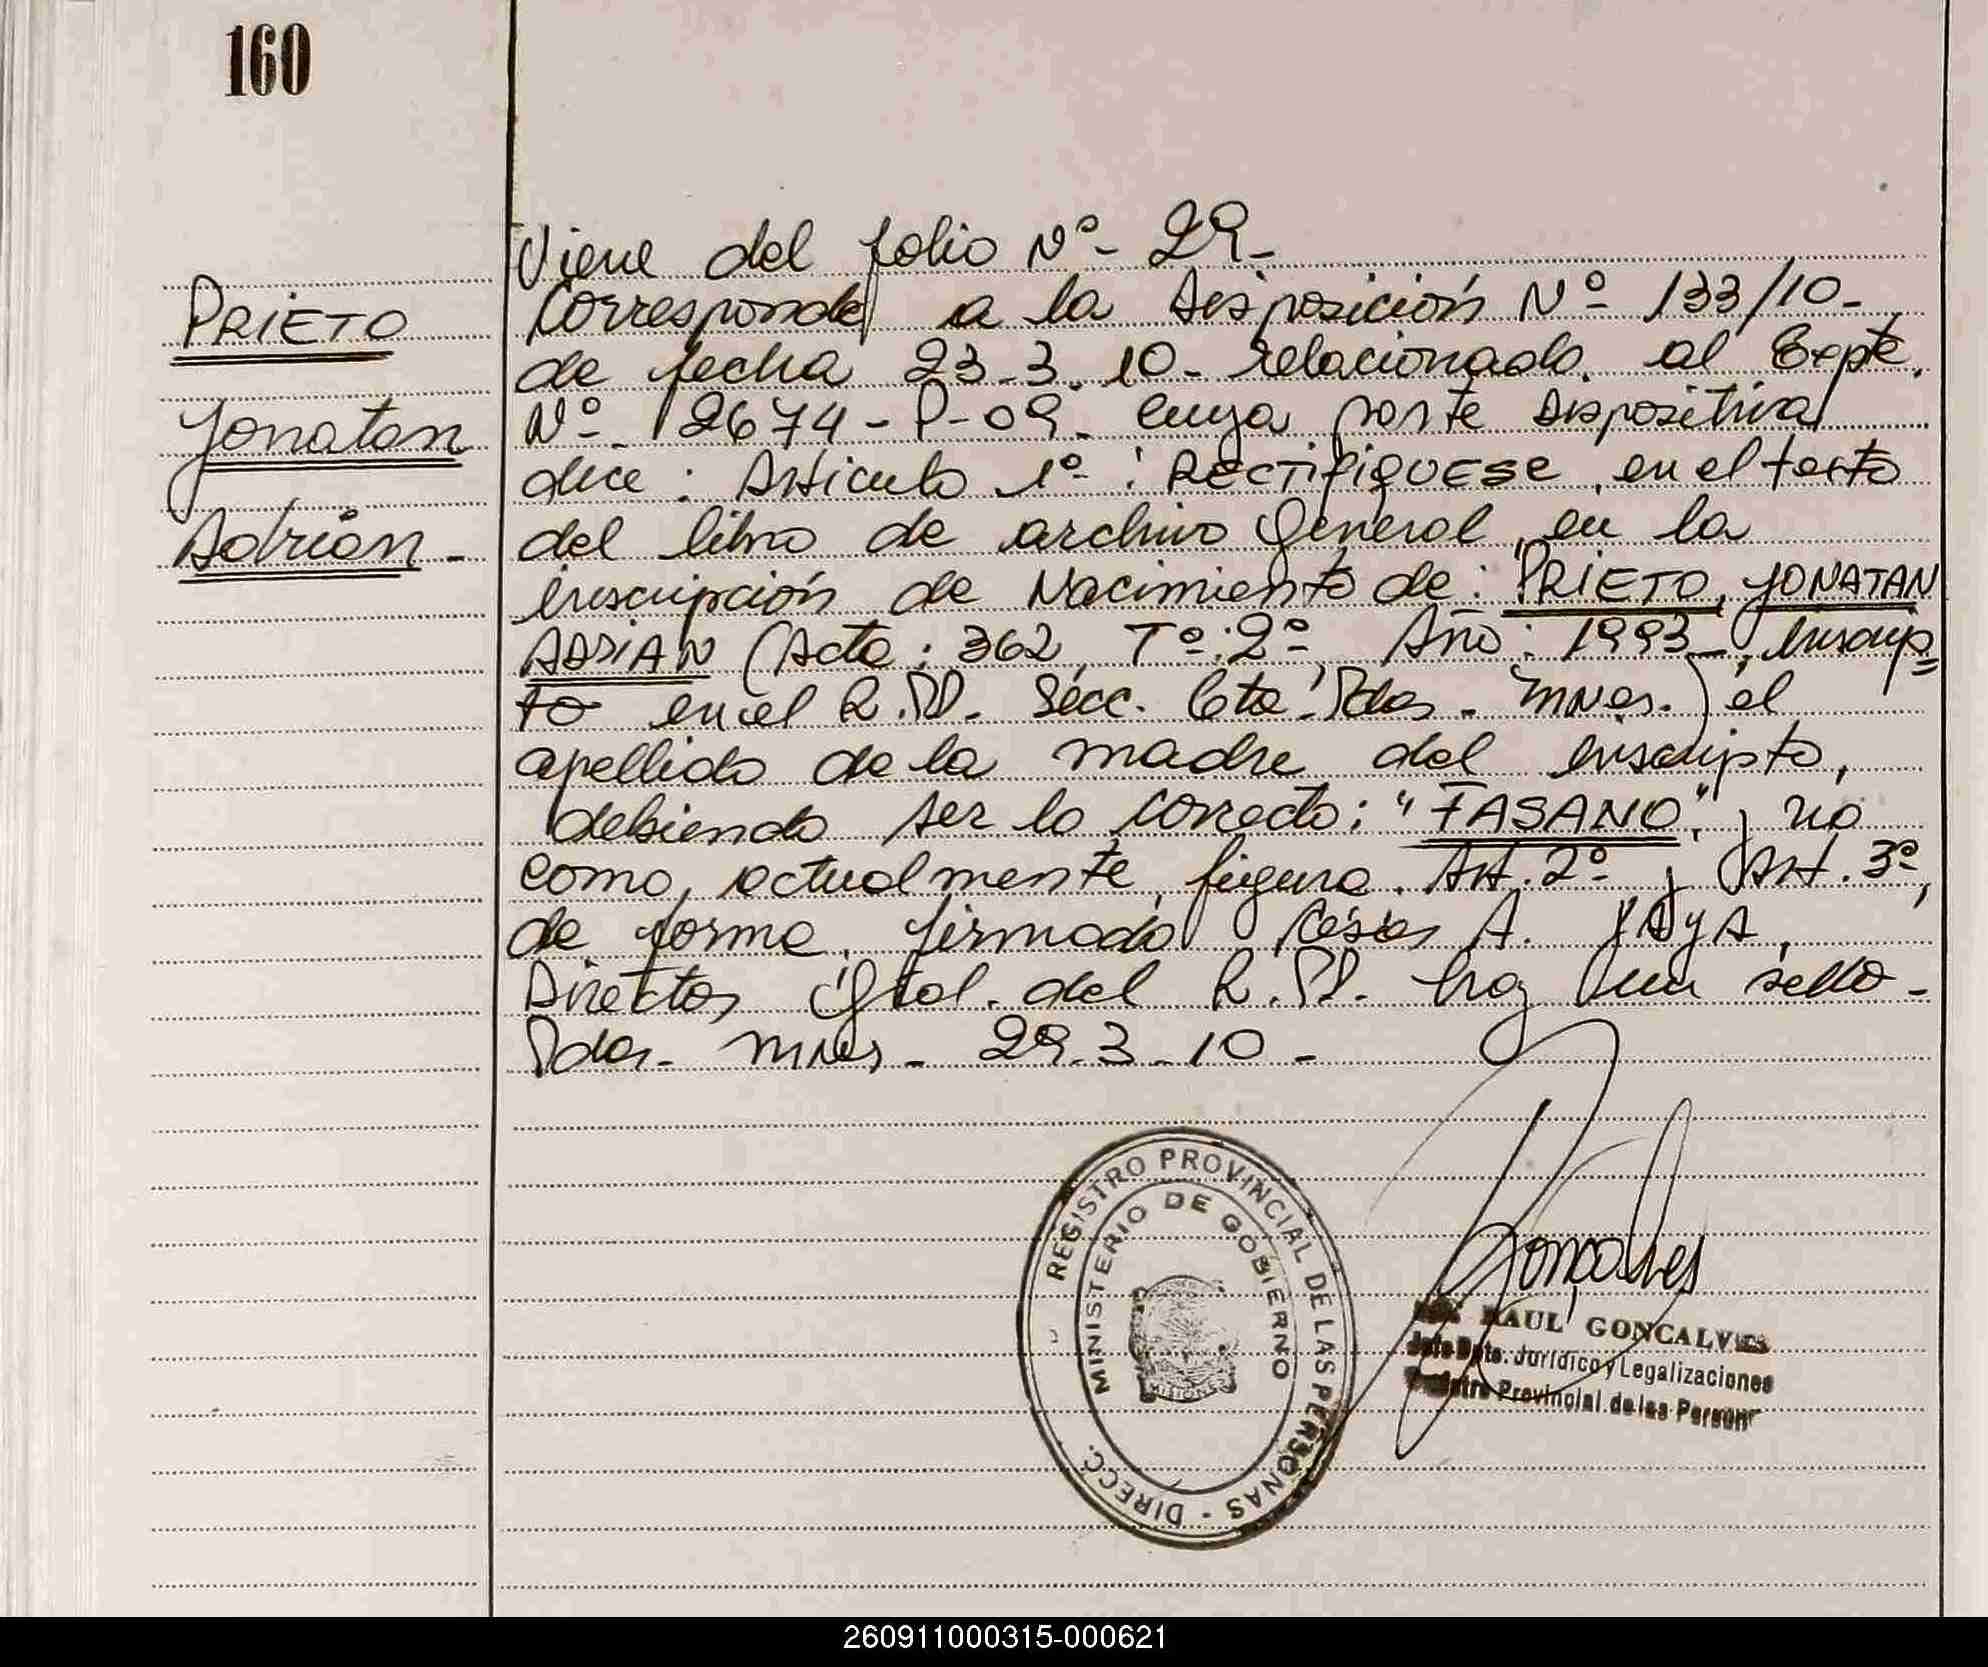 160
Viene del folio Nº- 29-
PRIETO
Yonatan
Adrián-
Corresponde a la Disposición Nº- 133/10-
de fecha 23-3-10- relacionado al Expte.
Nº- 2674-P-09- cuya parte dispositiva
dice: Artículo 1º-: RECTIFIQUESE, en el texto
del libro de archivo General, en la
inscripción de Nacimiento de: PRIETO, YONATAN
ADRIAN (Acta: 362, Tº: 2º- Año: 1993-, inscrip=
to en el R.P.P. Secc. 6ta. Pdas. Mnes.) el
apellido de la madre del inscripto,
debiendo ser lo correcto: "FASANO" y no
como actualmente figura. Art. 2º- y Art. 3º,
de forma, firmado César A.
Director Gral. del R.P.P. hay un sello-
Pdas- Mnes- 29-3-10-
REGISTRO PROVINCIAL DE LAS PERSONAS - DIRECC.
MINISTERIO DE GOBIERNO
MISIONES
Gonçalves
RAUL GONCALVES
Jefe Dpto. Jurídico y Legalizaciones
Registro Provincial de las Person
260911000315-000621